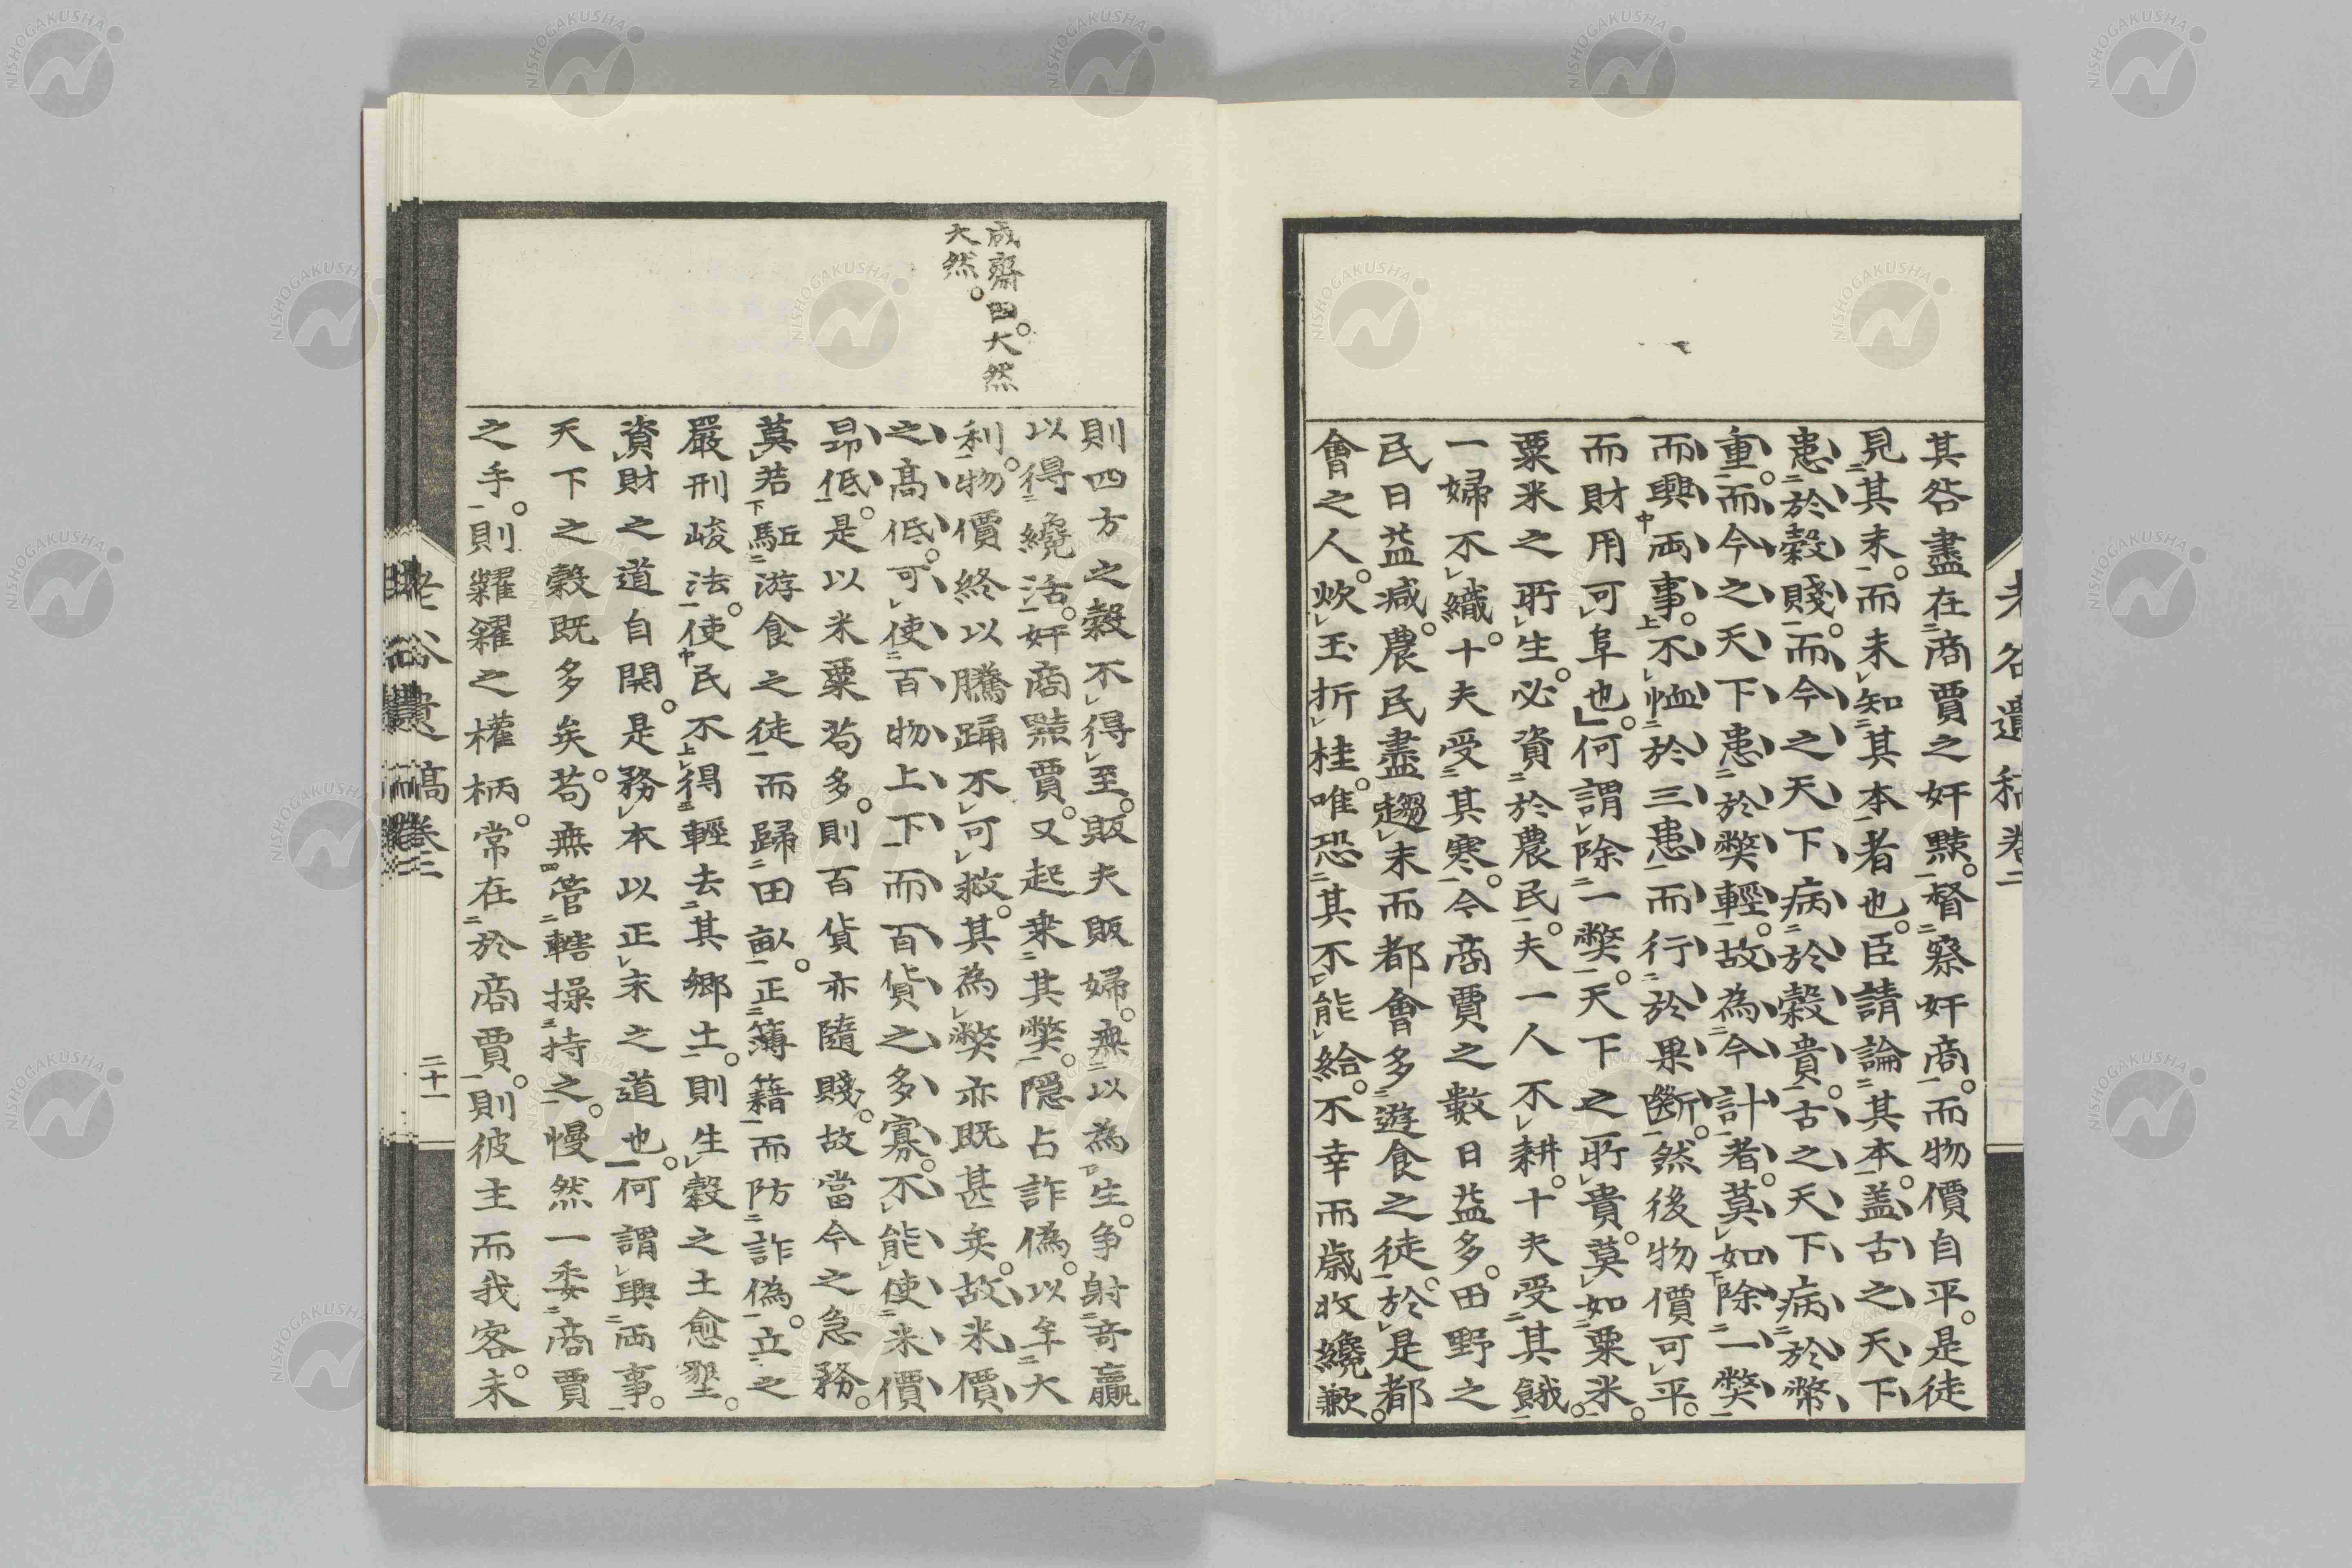 其咎盡在商賈之奸黠。督察奸商。而物價自平。是徒
見其末。而未知其本者也。臣請論其本。盖古之天下
患於穀賤。而今之天下病於穀貴。古之天下病於幣
重。而今之天下患於弊輕。故為今計者。莫如除一弊
而興両事。不恤於三患而行於果斷。然後物價可平。
而財用可阜也。」何謂除一弊。天下之所貴。莫如粟米。
粟米之所生。必資於農民。夫一人不耕。十夫受其餓。
一婦不織。十夫受其寒。今商賈之數日益多。田野之
民日益减。農民盡趨末而都會多遊食之徒。於是都
會之人。炊玉折桂。唯恐其不能給。不幸而歳收纔歉。
則四方之穀不得至。販夫販婦。無以為生。争射竒贏
以得纔活。奸商黠賈。又起乗其弊。隠占詐偽。以牟大
利。物價終以騰踊不可救。其為弊亦既甚矣。故米價
之髙低。可使百物上下而百貨之多寡。不能使米價
昂低。是以米粟苟多。則百貨亦隨賤。故當今之急務。
莫若駈游食之徒而歸田畝。正簿籍而防詐偽。立之
嚴刑峻法。使民不得輕去其郷土。則生穀之土愈墾。
資財之道自開。是務本以正末之道也。何謂興両事。
天下之穀既多矣。苟無管轄操持之。慢然一委商賈
之手。則糶糴之權柄。常在於商賈。則彼主而我客。未
成齋曰。大然
大然。
二十一
NISHOGAKUSHA